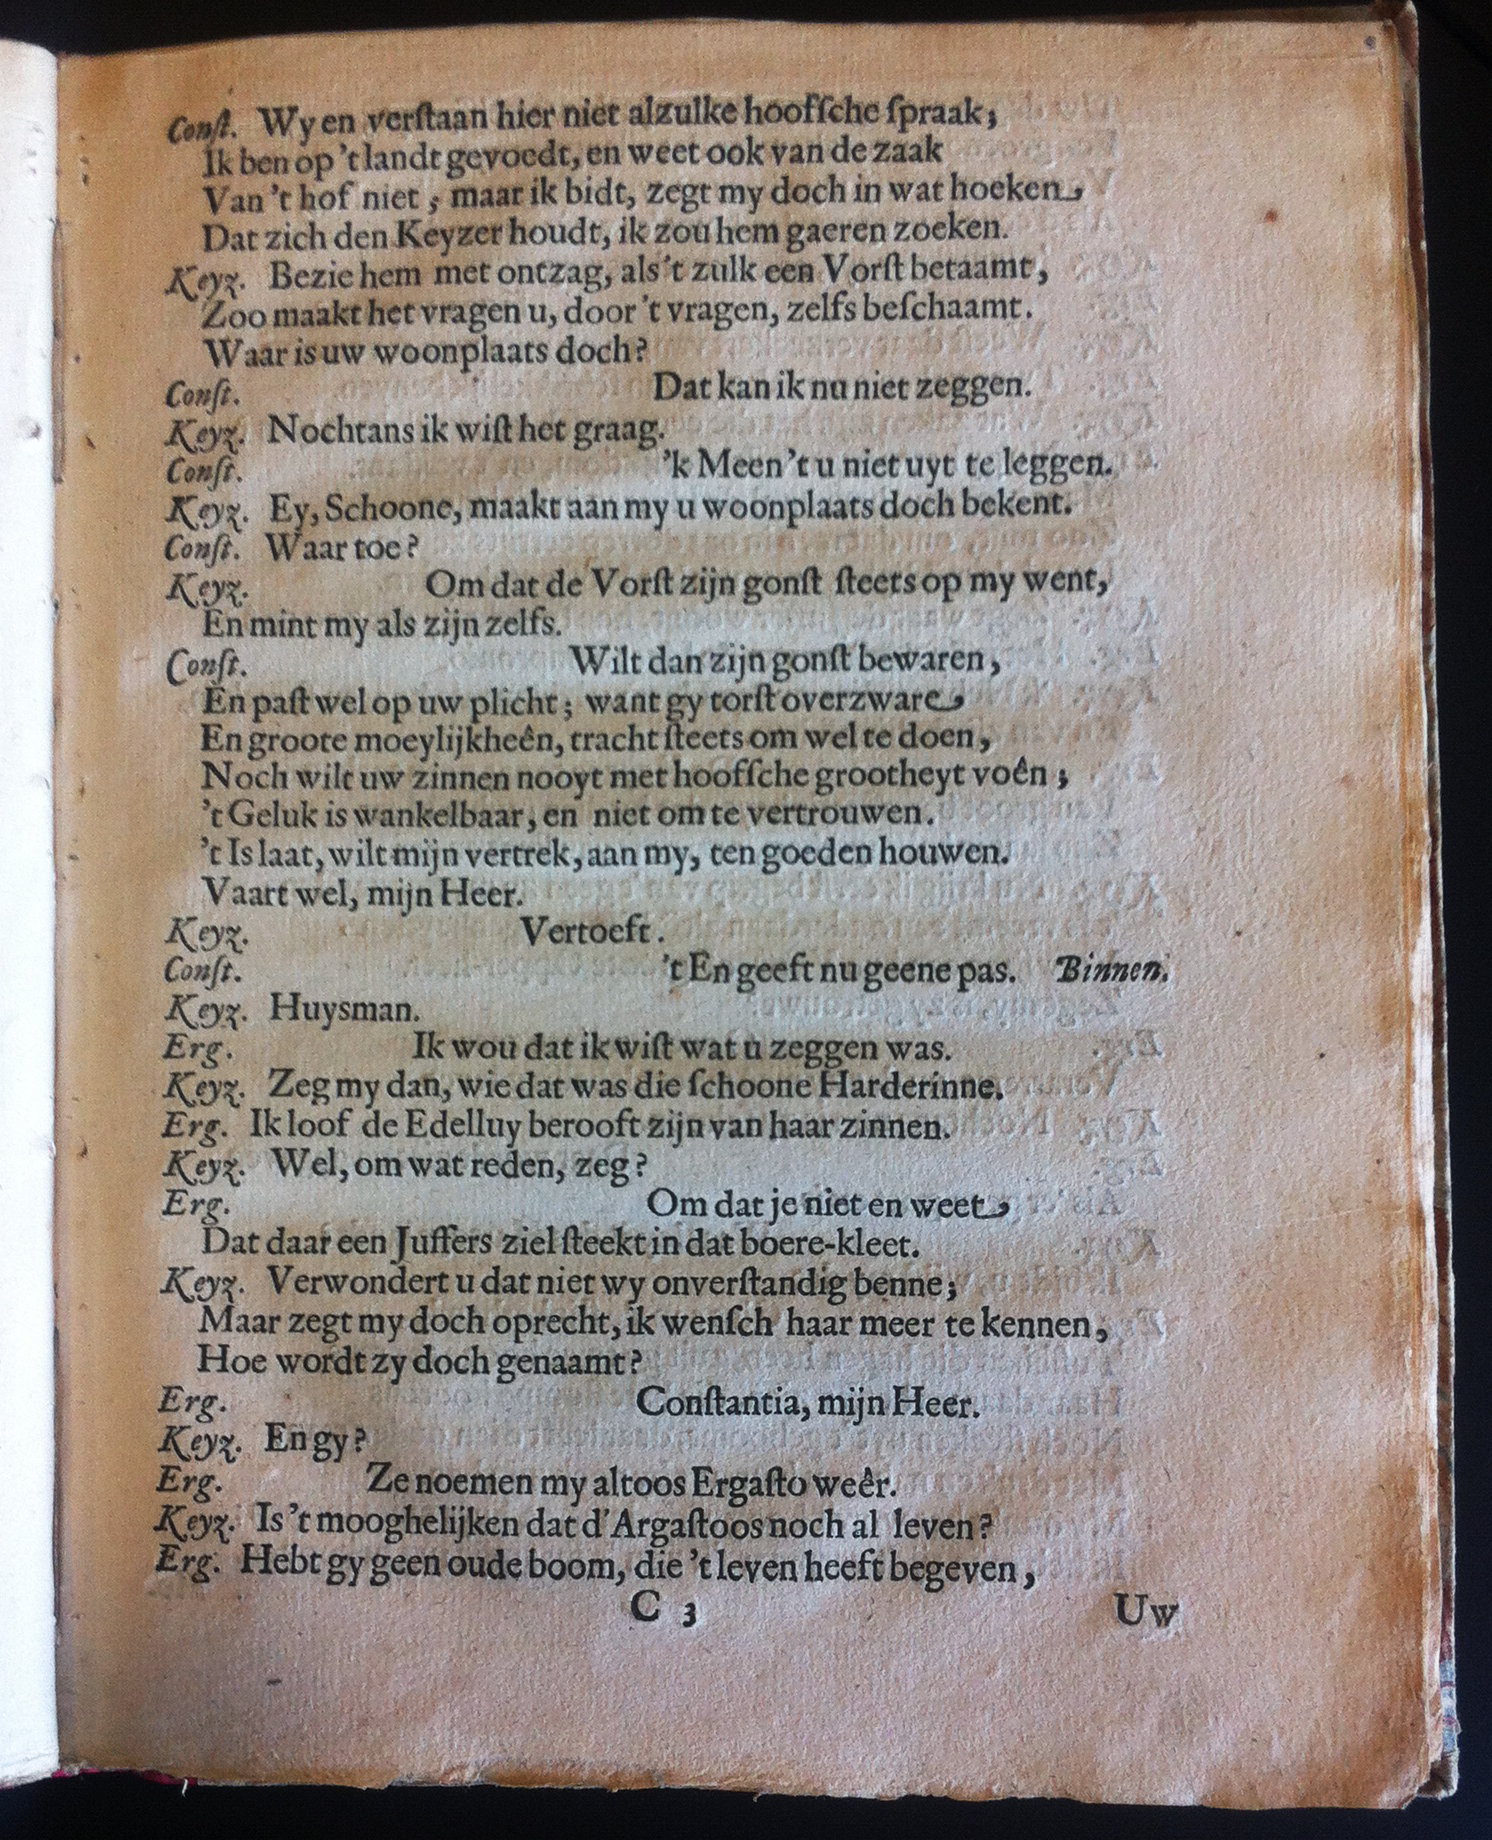 Conſt. Wy en verſtaan hier niet alzulke hoofſche ſpraak;
Ik ben op 't landt gevoedt, en weet ook van de zaak
Van 't hof niet; maar ik bidt, zegt my doch in wat hoeken
Dat zich den Keyzer houdt, ik zou hem gaeren zoeken.
Keyz. Bezie hem met ontzag, als 't zulk een Vorſt betaamt,
Zoo maakt het vragen u, door 't vragen, zelfs beſchaamt.
Waar is uw woonplaats doch?
Conſt. Dat kan ik nu niet zeggen.
Keyz. Nochtans ik wiſt het graag.
Conſt. 'k Meen 't u niet uyt te leggen.
Keyz. Ey, Schoone, maakt aan my u woonplaats doch bekent.
Conſt. Waar toe?
Keyz. Om dat de Vorſt zijn gonſt ſteets op my went,
En mint my als zijn zelfs.
Conſt. Wilt dan zijn gonſt bewaren,
En paſt wel op uw plicht; want gy torſt overzware
En groote moeylijkheên, tracht ſteets om wel te doen,
Noch wilt uw zinnen nooyt met hoofſche grootheyt voên;
't Geluk is wankelbaar, en niet om te vertrouwen.
't Is laat, wilt mijn vertrek, aan my, ten goeden houwen.
Vaart wel, mijn Heer.
Keyz. Vertoeft.
Conſt. 't En geeft nu geene pas. Binnen.
Keyz. Huysman.
Erg. Ik wou dat ik wiſt wat u zeggen was.
Keyz. Zeg my dan, wie dat was die ſchoone Harderinne.
Erg. Ik loof de Edelluy berooft zijn van haar zinnen.
Keyz. Wel, om wat reden, zeg?
Erg. Om dat je niet en weet
Dat daar een Juffers ziel ſteekt in dat boere-kleet.
Keyz. Verwondert u dat niet wy onverſtandig benne;
Maar zegt my doch oprecht, ik wenſch haar meer te kennen,
Hoe wordt zy doch genaamt?
Erg. Conſtantia, mijn Heer.
Keyz. En gy?
Erg. Ze noemen my altoos Ergaſto weêr.
Keyz. Is 't mooghelijken dat d'Argaſtoos noch al leven?
Erg. Hebt gy geen oude boom, die 't leven heeft begeven,
C 3 Uw